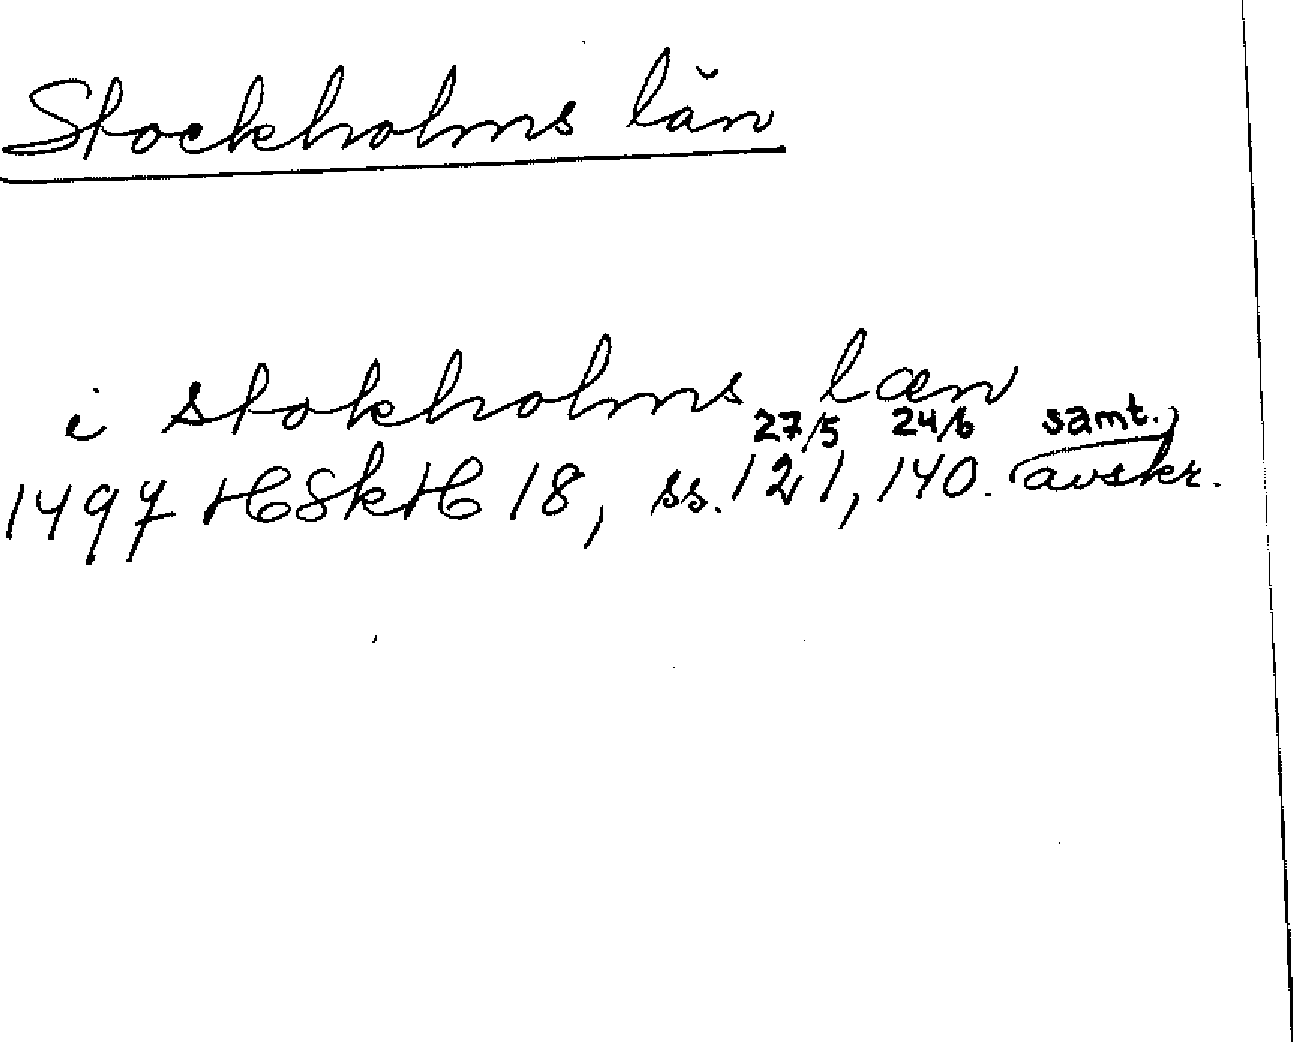 Stockholms län
i stokholms læn
27/5 24/6 samt.
1497 HSkH 18, ss. 121, 140. avskr.